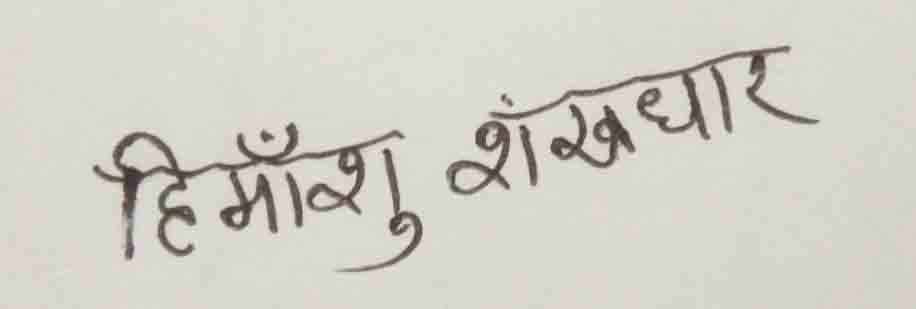 हिमाँशु शंखधार